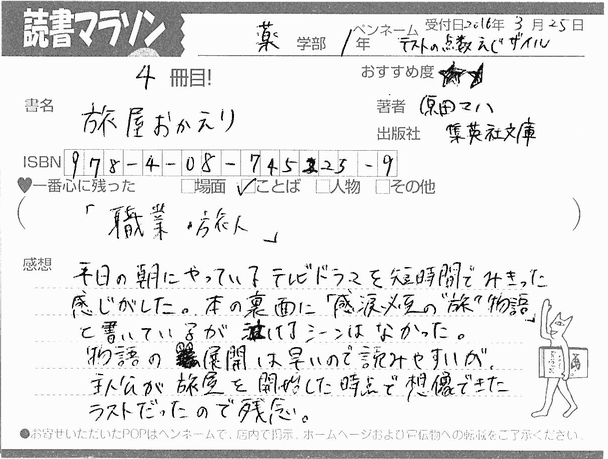 読書マラソン
受付日2016年 3月25日
ペンネーム
薬 学部 1年 テストの点数えじザイル
4 冊目!
おすすめ度 ★★
書名 旅屋おかえり
著者 原田マハ
出版社 集英社文庫
ISBN 978-4-08-745223-9
♥一番心に残った □場面 ☑ことば □人物 □その他
「職業・旅人」
感想
平日の朝にやっているテレビドラマを短時間でみきった
感じがした。本の裏面に「感涙必至の"旅"物語」
と書いているが 泣けるシーンはなかった。
物語の 展開は早いので読みやすいが、
主人公が旅屋を開始した時点で想像できた
ラストだったので残念。
●お寄せいただいたPOPはペンネームで、店内で掲示、ホームページおよび宣伝物への転載をご了承ください。